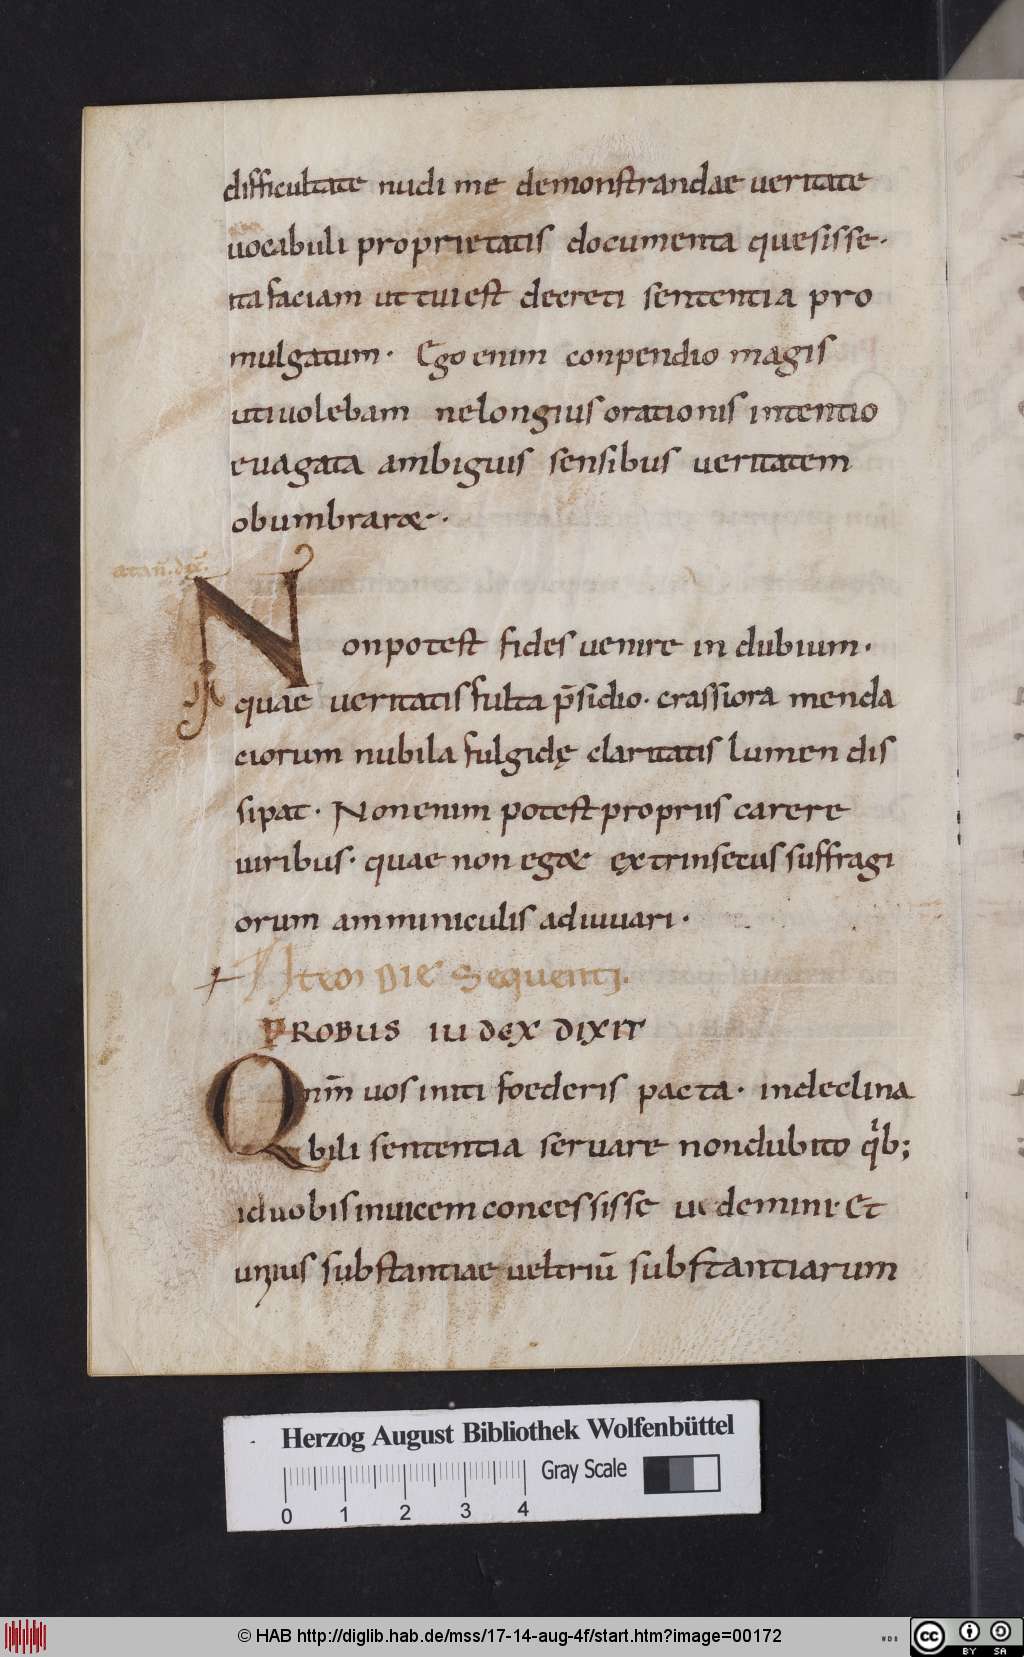 difficultate nudi me demonstrandae veritate
uocabuli proprietatis documenta quesisse·
ita faciam ut tui est decreti sententia pro
mulgatum· Ego enim conpendio magis
uti uolebam ne longius orationis intentio
evagata ambiguis sensibus veritatem
obumbraret·
atan̄. dix̄.
Non potest fides venire in dubium·
quae veritatis fulta p̄sidio· crassiora menda
ciorum nubila fulgidę claritatis lumen dis
sipat· Non enim potest propriis carere
uiribus· quae non eget extrinsecus suffragi
orum amminiculis adiuuari·
Item die sequenti.
PROBUS IUDEX DIXIT
Qnm̄ uos initi foederis pacta· indeclina
bili sententia servare non dubito q̇b;
id uobis inuicem concessisse uidemini· Et
unius substantiae vel triū substantiarum
Herzog August Bibliothek Wolfenbüttel
Gray Scale
0 1 2 3 4
© HAB http://diglib.hab.de/mss/17-14-aug-4f/start.htm?image=00172
WDB
cc BY SA